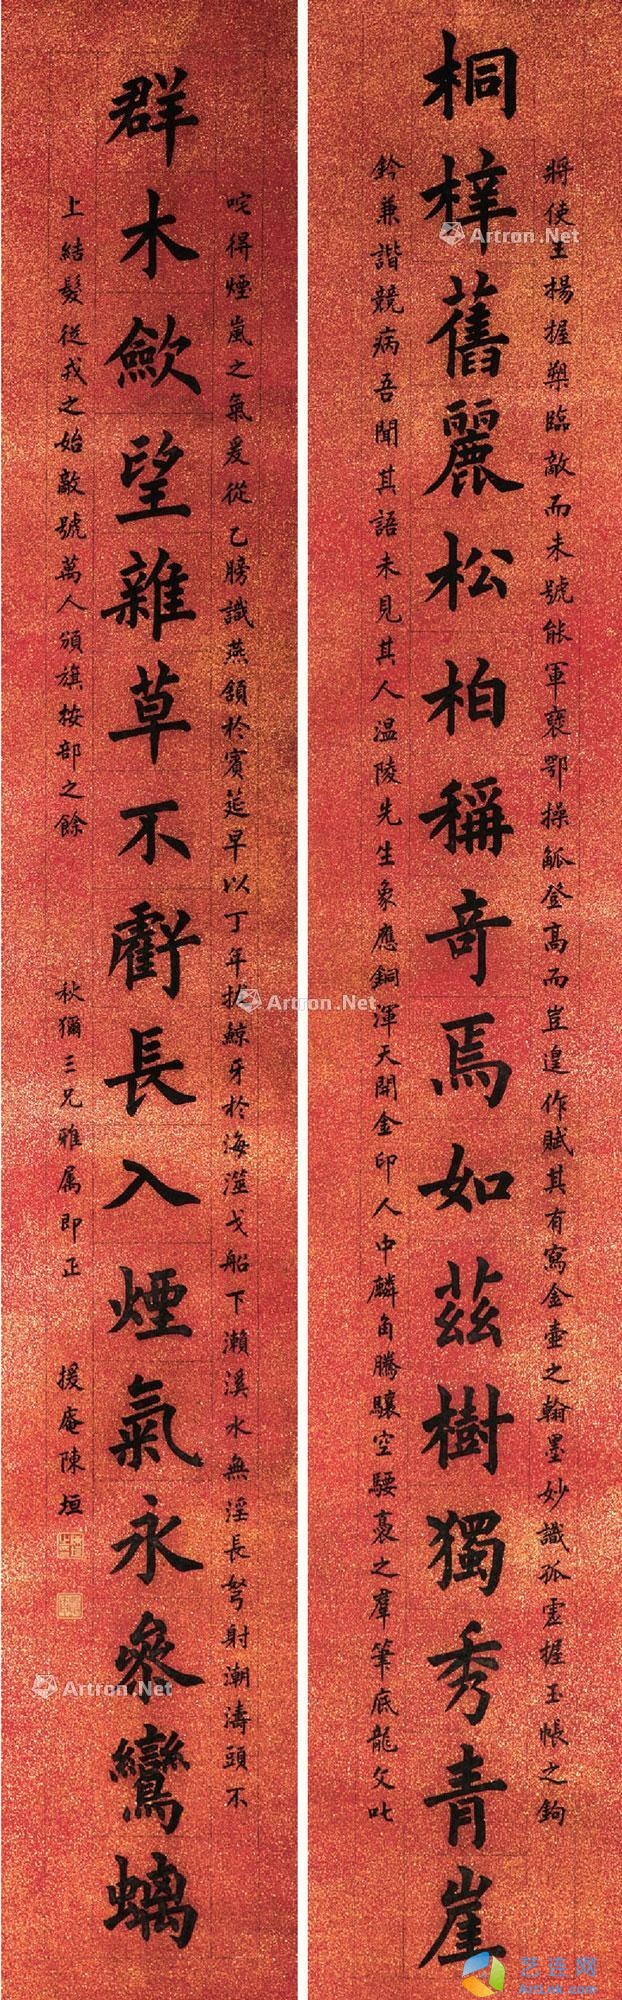 桐梓舊麗松柏稱奇焉如茲樹獨秀青崖
將使生揚握槊臨敵而未號能軍褒鄂操觚登高而豈遑作賦其有寫金壺之翰墨妙識孤虛握玉帳之鉤
鈐兼諧競病吾聞其語未見其人温陵先生象應銅渾天開金印人中麟角騰驤空騕褭之羣筆底龍文叱
群木斂望雜草不虧長入煙氣永參鸞螭
咤得煙嵐之氣爰從乙牓識燕頷於賓莚早以丁年拔鯨牙於海澨戈船下瀨溪水無淫長弩射潮濤頭不
上結髮從戎之始敵號萬人頒旗按部之餘
秋獮三兄雅属即正
援庵陳垣
Artron.Net
Artron.Net
Artron.Net
艺连网
ArtLink.com